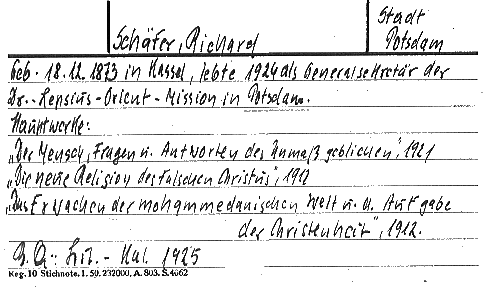 Schäfer, Richard
Stadt
Potsdam
Geb. 18.12.1873 in Kassel, lebte 1924 als Generalsekretär der
Dr.-Lepsius-Orient-Mission in Potsdam.
Hauptwerke:
„Der Mensch, Fragen u. Antworten des Unmaßgeblichen", 1921
„Die neue Religion des falschen Christus", 1912
„Das Erwachen der mohammedanischen Welt u. d. Aufgabe
der Christenheit", 1912.
Lit.-Kal. 1925
Reg. 10 Stichnote. 1. 50. 232000, A. 803. S. 4662